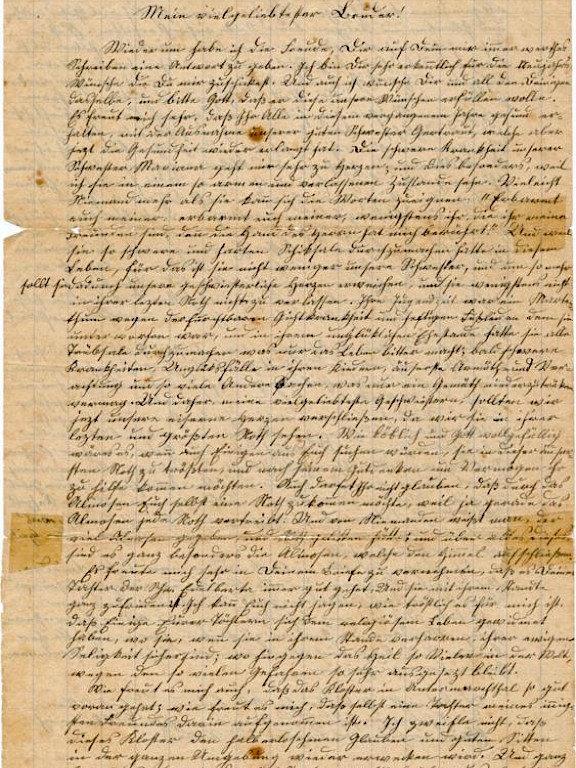 Mein vielgeliebtester Bruder!
Wiederum habe ich die Freude, Dir auf Dein mir immer werthes
Schreiben eine Antwort zu geben. Ich bin Dir sehr erkentlich für die Neujahrs
Wünsche die Du mir zuschickest. Und auch ich wünsche Dir und all den Deinigen
dasselbe, und bitte Gott, daß er diese unsere Wünschen erfüllen wolle.
Es freut mich sehr, daß Ihr Alle in diesem vergangenem Jahre gesund er-
halten, mit der Ausnahme unserer guten Schwester Gertraut, welche aber
jezt die Gesundheit wieder erlangt hat. Die schwere Krankheit unserer
Schwester Mariana geht mir sehr zu Herzen; und dies besonders, weil
ich sie in einem so armen und verlassenen Zustande sehe. Vieleicht
Niemand mehr als sie kan sich die Worten zueignen: "Erbarmet
euch meiner, erbarmet euch meiner, wenigstens ihr, die ihr meine
Freunden sind, den die Hand des Herrn hat mich berührt." Und weil
sie so schwere und harten Schiksale durchzumachen hatte in diesem
Leben, für das ist sie nicht weniger unsere Schwester, und um so mehr
sollt sie dadurch unsere geschwisterliche Herzen erweichen, und sie wenigstens nicht
in ihrer lezten Noth nicht zu verlassen. Ihre Jugendzeit war ein Marter-
thum wegen der furchtbaren Gichtkrankheit und heftigen denen sie
unterworfen war, und in ihrem unglüklichen Ehestande hatte sie alle
Trübsale durchzumachen was nur das Leben bitter macht; bald schwere
Krankheiten, Unglüksfälle in ihren Kindern, äußerste Armuth und Ver-
achtung und so viele Andere Sachen, was nur ein Gemüth niederzudrüken
vermag. Und daher meine vielgeliebteste Geschwistern, sollten wir
jezt unsere eiserne Herzen verschließen, da wir sie in ihrer
lezten und größten Noth sehen. Wie köstlich und Gott wollgefällig
wäre es, wen auch Einigen aus Euch suchen würden, sie in dieser äußer-
sten Noth zu trößten, und nach seinem Gutdenken und Vermögen ihr
zu hilfe komen möchten. Auch darfet Ihr nicht glauben, daß durch das
Almosen Euch selbst eine Noth zukomen möchte, weil ja gerade das
Almosen jede Noth vertreibt. Und von Niemanden weißt man, der
viel Almosen gegeben, und Noth gelitten hätte; und über alles dieses
sind es ganz besonders die Almosen, welche den Himel aufschließen.
Es freute mich sehr in Deinem Briefe zu vernehmen, daß es Deiner
Tochter der Schw. Engelberta immer gut gehet, Und sie mit ihrem Stande
ganz zufrieden ist. Ich kan Euch nicht sagen, wie tröstlich es für mich ist,
daß Einige Eurer Töchtern sich dem religiösem Leben gewidmet
haben, wo sie, wen sie in ihrem Stande verharren, ihrer ewigen
Seligkeit sicher sind; wo hingegen das Heil so Vieler in der Welt,
wegen den so vielen Gefahren so sehr ausgesetzt bleibt.
Wie freut es mich auch, daß das Kloster in Untermarchthal so gut
voran gehet; wie freut es mich, daß selbst eine Tochter meines
Freundes darin aufgenomen ist. Ich zweifle nicht, daß
dieses Kloster den halberloschenen Glauben und guten Sitten
in der ganzen Umgebung wieder erwecken wird. Und ganz